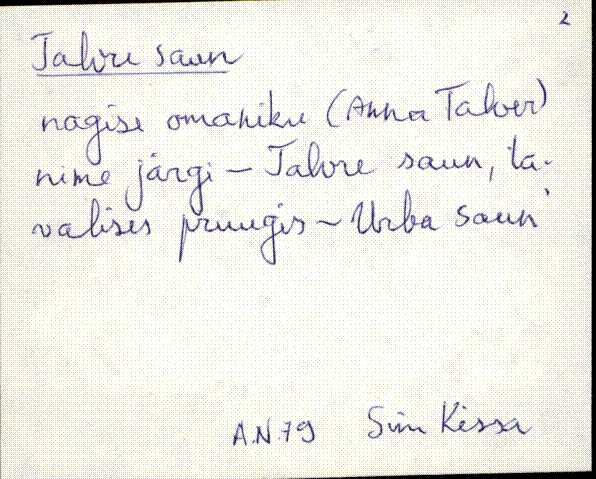 2
Talvre saun
nagise omaniku (Anna Talver)
nime järgi – Talvre saun, ta-
valises pruugis – Urba saun
A.N.79 Siim Kissa